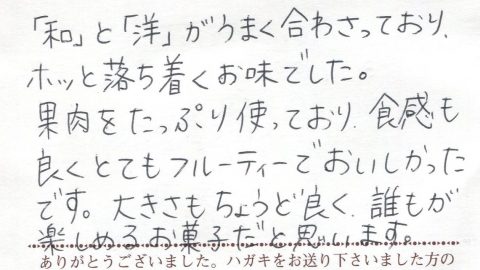 「和」と「洋」がうまく合わさっており、
ホッと落ち着くお味でした。
果肉をたっぷり使っており、食感も
良くとてもフルーティーでおいしかった
です。大きさもちょうど良く、誰もが
楽しめるお菓子だと思います。
ありがとうございました。ハガキをお送り下さいました方の